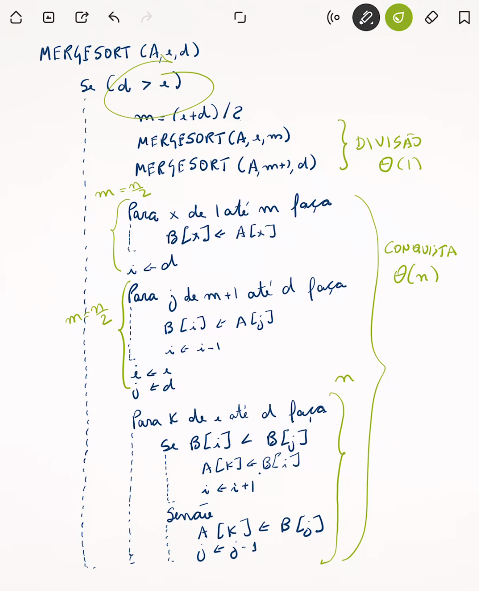 MERGESORT (A, e, d)
se (d > e)
m = (e+d)/2
MERGESORT (A, e, m)
MERGESORT (A, m+1, d)
DIVISÃO
Θ(1)
m = n/2
Para x de 1 até m faça
B[x] ← A[x]
i ← d
CONQUISTA
Θ(n)
m = n/2
Para j de m+1 até d faça
B[i] ← A[j]
i ← i-1
i ← e
j ← d
n
Para K de e até d faça
se B[i] < B[j]
A[K] ← B[i]
i ← i+1
Senão
A[K] ← B[j]
j ← j-1